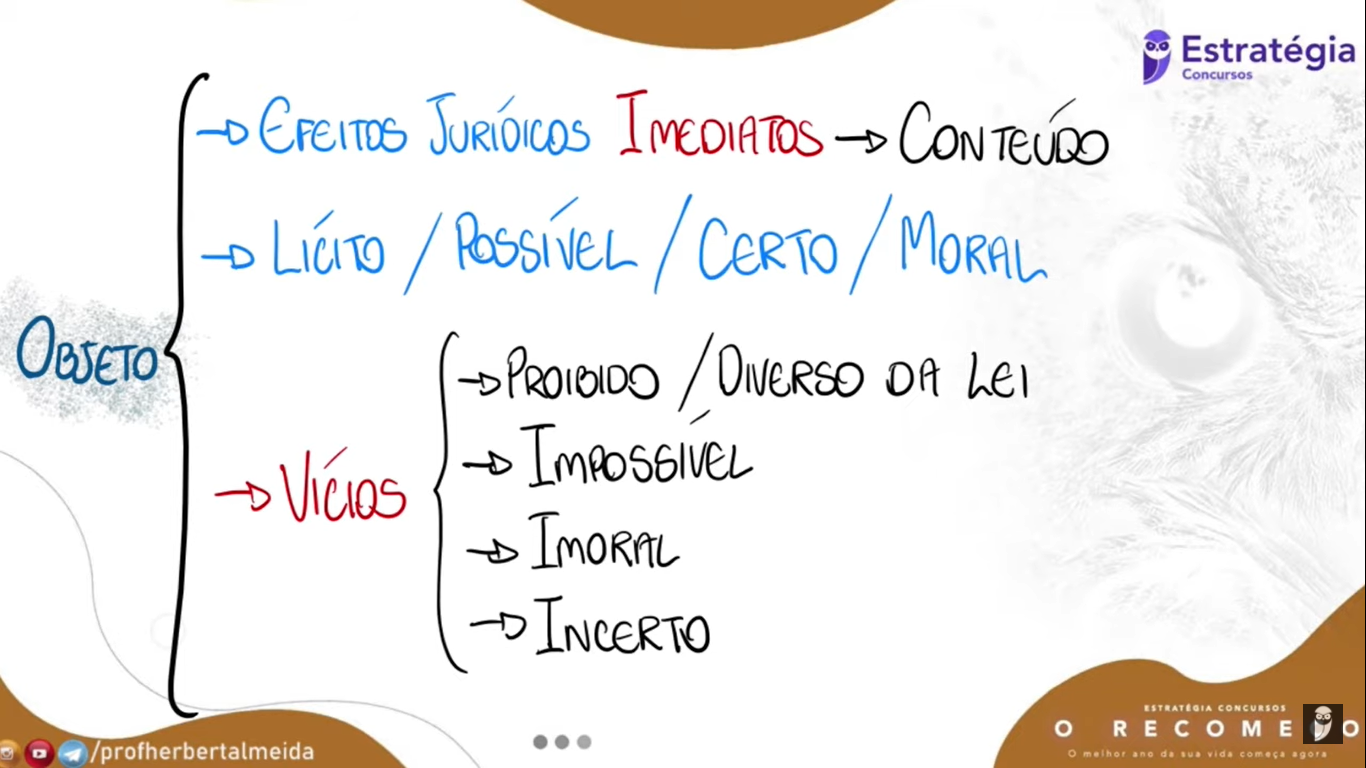 Estratégia
Concursos
→ EFEITOS JURÍDICOS IMEDIATOS → CONTEÚDO
→ LÍCITO / POSSÍVEL / CERTO / MORAL
OBJETO
→ VÍCIOS
→ PROIBIDO / DIVERSO DA LEI
→ IMPOSSÍVEL
→ IMORAL
→ INCERTO
/profherbertalmeida
ESTRATÉGIA CONCURSOS
O RECOMEÇO
O melhor ano da sua vida começa agora